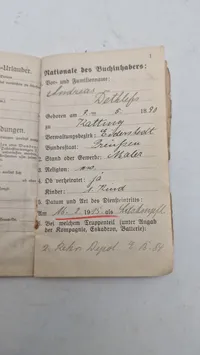 -Urlauber.
dungen.
1
Nationale des Buchinhabers:
Vor- und Familienname:
Andreas
Dethlefs
Geboren am 2. 5. 90
zu Katting
Verwaltungsbezirk: Eiderstedt
Bundesstaat: Preußen
2. Stand oder Gewerbe: Maler
3. Religion: ev.
4. Ob verheiratet: ja
Kinder: 1 Kind
5. Datum und Art des Diensteintritts:
Am 16. 2. 1915 als
Bei welchem Truppenteil (unter Angabe
der Kompagnie, Eskadron, Batterie):
Rekr. Depot